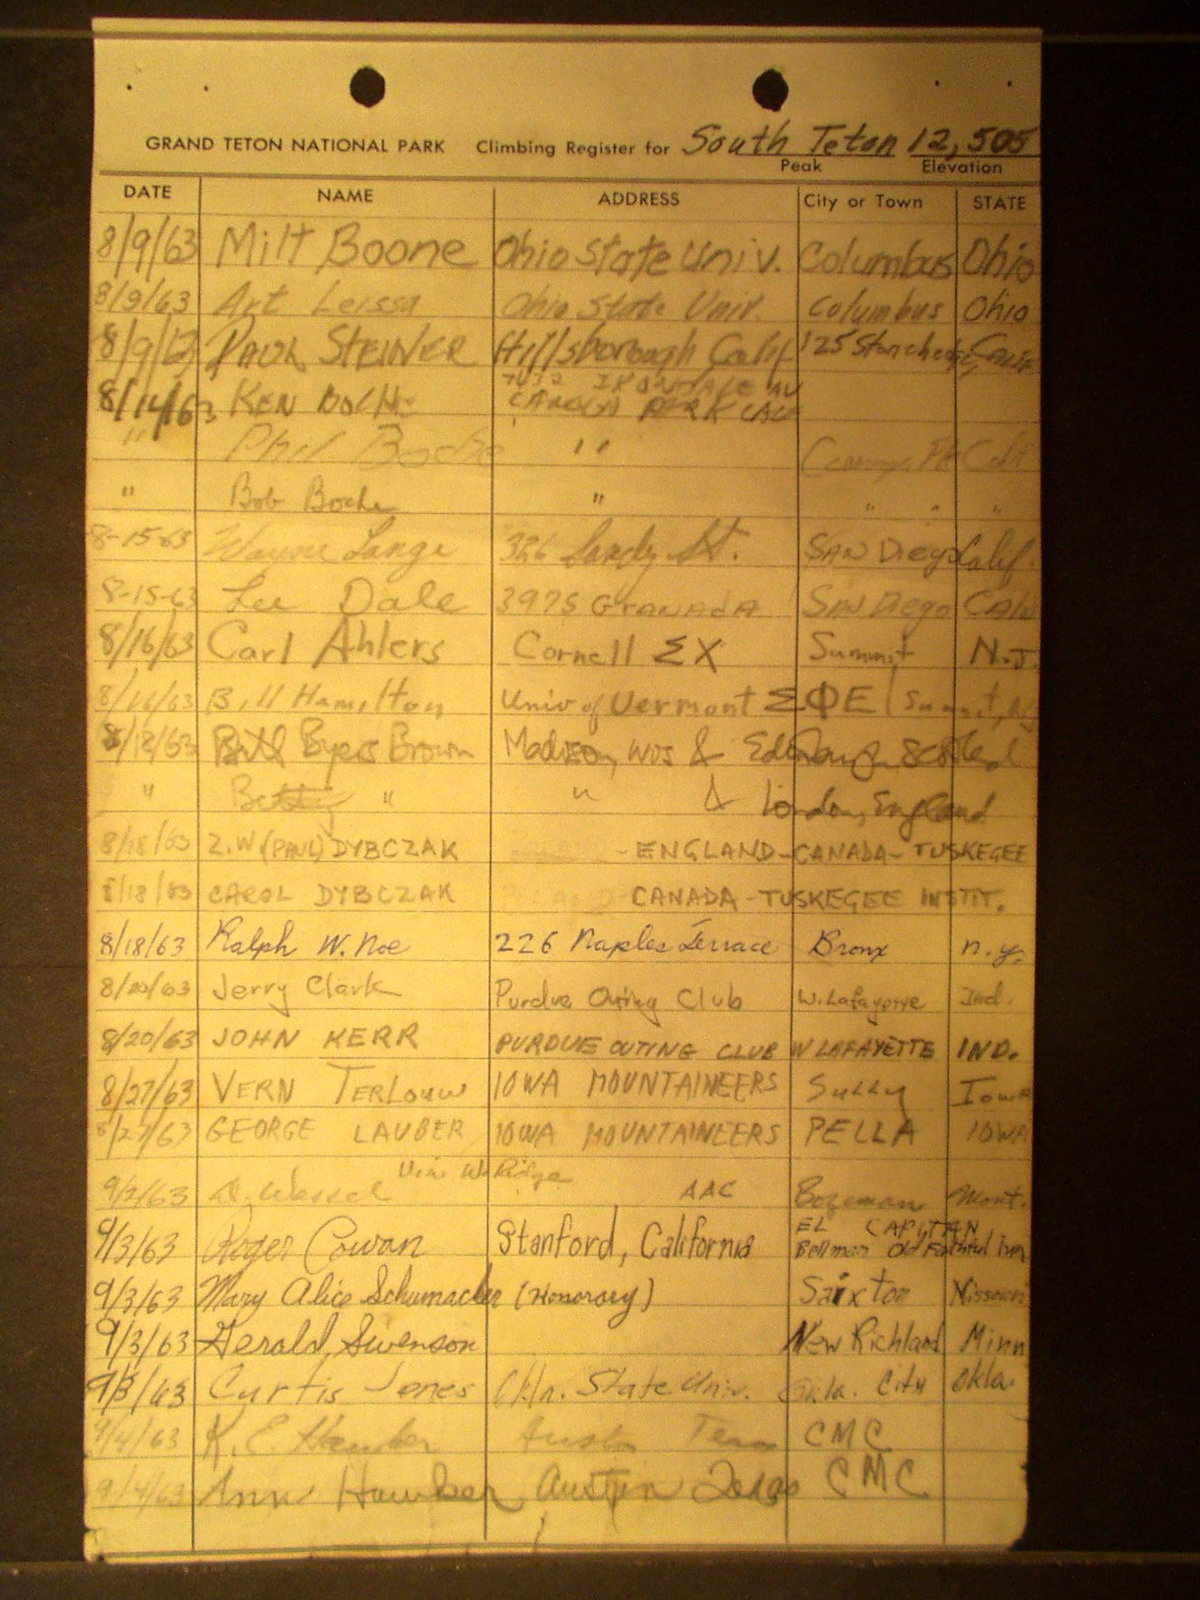 GRAND TETON NATIONAL PARK Climbing Register for South Teton 12,505
Peak Elevation
DATE NAME ADDRESS City or Town STATE
8/9/63 Milt Boone Ohio State Univ. Columbus Ohio
8/9/63 Art Leissa Ohio State Univ. Columbus Ohio
8/9/63 PAUL STEINER Hillsborough Calif 125 Stonehedge, Calif
8/14/63 KEN PARK
" Phil Boche " Calif
" Bob Boche " " " "
8-15-63 Wayne Lange 326 Sandy St. SAN Diego Calif.
8-15-63 Lee Dale 3975 GRANADA SAN Diego CALIF
8/16/63 Carl Ahlers Cornell ΣX Summit N.J.
8/16/63 Bill Hamilton Univ of Vermont ΣΦE Summit, NJ
8/18/63 Byers Brown Madison, Wis & Edinburgh,
" Betty " " & London, England
8/18/63 Z.W (PAUL) DYBCZAK - ENGLAND-CANADA- TUSKEGEE
8/18/63 CAROL DYBCZAK - CANADA - TUSKEGEE INSTIT.
8/18/63 Ralph W. Noe 226 Naples Terrace Bronx n.y.
8/20/63 Jerry Clark Purdue Outing Club W. Lafayette Ind.
8/20/63 JOHN KERR PURDUE OUTING CLUB W LAFAYETTE IND.
8/27/63 VERN TERLOUW IOWA MOUNTAINEERS SULLY Iowa
8/27/63 GEORGE LAUBER IOWA MOUNTAINEERS PELLA IOWA
Via W. Ridge
9/2/63 D. Wessel AAC Bozeman Mont.
EL CAPITAN
9/3/63 Roger Cowan Stanford, California Bellman Old Faithful Inn
9/3/63 Mary Alice Schumacher (Honorary) Missouri
9/3/63 Gerald Swenson New Richland Minn
9/3/63 Curtis Jones Okla. State Univ. Okla. City Okla.
9/4/63 K. E. Austin Texas CMC
9/4/63 Ann Austin Texas CMC